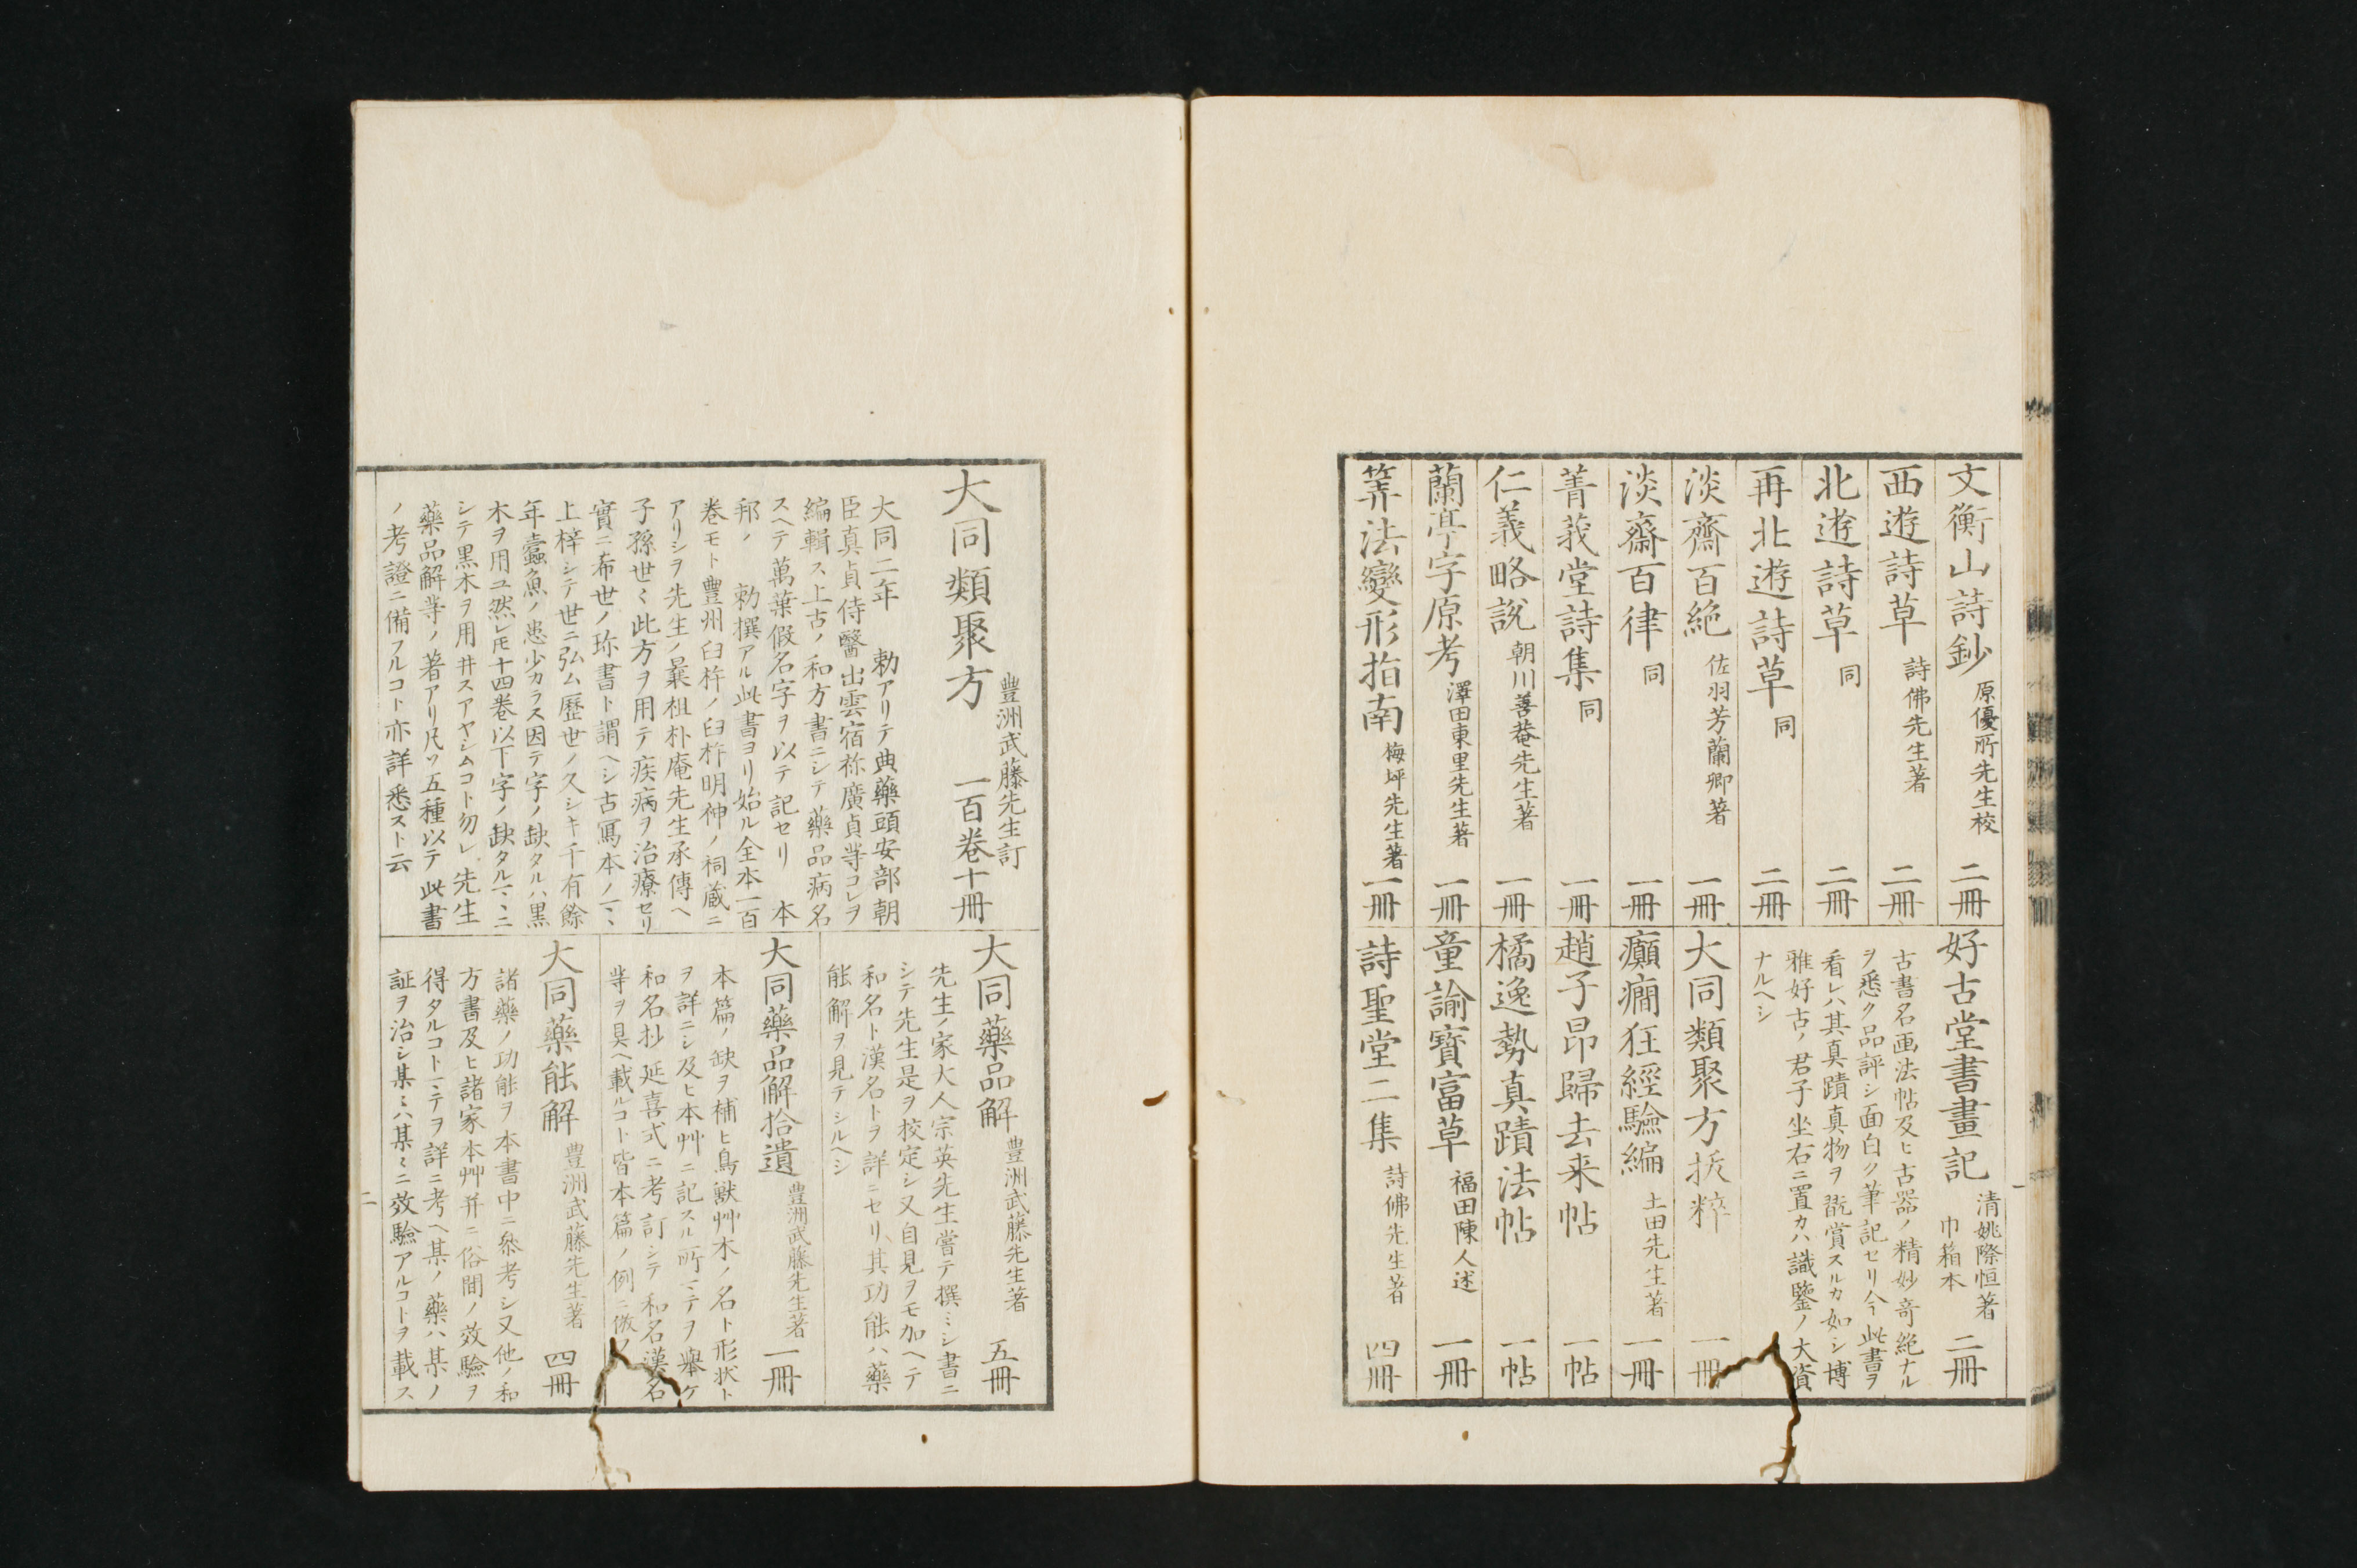 文衡山詩鈔 原優所先生校 二冊
西遊詩草 詩佛先生著 二冊
北遊詩草 同 二冊
再北遊詩草 同 二冊
淡齋百絶 佐羽芳蘭卿著 一冊
淡齋百律 同 一冊
菁莪堂詩集 同 一冊
仁義略説 朝川善菴先生著 一冊
蘭亭字原考 澤田東里先生著 一冊
筭法變形指南 梅坪先生著 一冊
好古堂書畫記 清姚際恒著 巾箱本 二冊
古書名画法帖及ヒ古器ノ精妙奇絶ナル
ヲ悉ク品評シ面白ク筆記セリ今此書ヲ
看レハ其真蹟真物ヲ翫賞スルカ如シ博
雅好古ノ君子坐右ニ置カハ識鑒ノ大資
ナルヘシ
大同類聚方抜粹 一冊
癲癇狂經驗編 土田先生著 一冊
趙子昂歸去来帖 一帖
橘逸勢真蹟法帖 一帖
童諭寳富草 福田陳人述 一冊
詩聖堂二集 詩佛先生著 四冊
一
大同類聚方 豊洲武藤先生訂 一百巻十冊
大同二年 勅アリテ典藥頭安部朝
臣真貞侍醫出雲宿祢廣貞等コレヲ
編輯ス上古ノ和方書ニシテ藥品病名
スヘテ萬葉假名字ヲ以テ記セリ 本
邦ノ 勅撰アル此書ヨリ始ル全本一百
巻モト豊州臼杵ノ臼杵明神ノ祠蔵ニ
アリシヲ先生ノ曩祖朴庵先生承傳ヘ
子孫世々此方ヲ用テ疾病ヲ治療セリ
實ニ希世ノ珎書ト謂ヘシ古冩本ノマヽ
上梓シテ世ニ弘ム歴世ノ久シキ千有餘
年蠧魚ノ患少カラス因テ字ノ缺タルハ黒
木ヲ用ユ然レ𪜈十四巻以下字ノ缺タルマヽニ
シテ黒木ヲ用井スアヤシムコト勿レ先生
藥品解等ノ著アリ凡ソ五種以テ此書
ノ考證ニ備フルコト亦詳悉スト云
大同藥品解 豊洲武藤先生著 五冊
先生ノ家大人宗英先生嘗テ撰ミシ書ニ
シテ先生是ヲ校定シ又自見ヲモ加ヘテ
和名ト漢名トヲ詳ニセリ其功能ハ藥
能解ヲ見テシルヘシ
大同藥品解拾遺 豊洲武藤先生著 一冊
本篇ノ缺ヲ補ヒ鳥獣艸木ノ名ト形状ト
ヲ詳ニシ及ヒ本艸ニ記スル所マテヲ擧ケ
和名抄延喜式ニ考訂シテ和名漢名
等ヲ具ヘ載ルコト皆本篇ノ例ニ倣フ
大同藥能解 豊洲武藤先生著 四冊
諸藥ノ功能ヲ本書中ニ叅考シ又他ノ和
方書及ヒ諸家本艸并ニ俗間ノ效驗ヲ
得タルコトマテヲ詳ニ考ヘ某ノ藥ハ某ノ
証ヲ治シ某ミハ某ミニ效驗アルコトヲ載ス
二